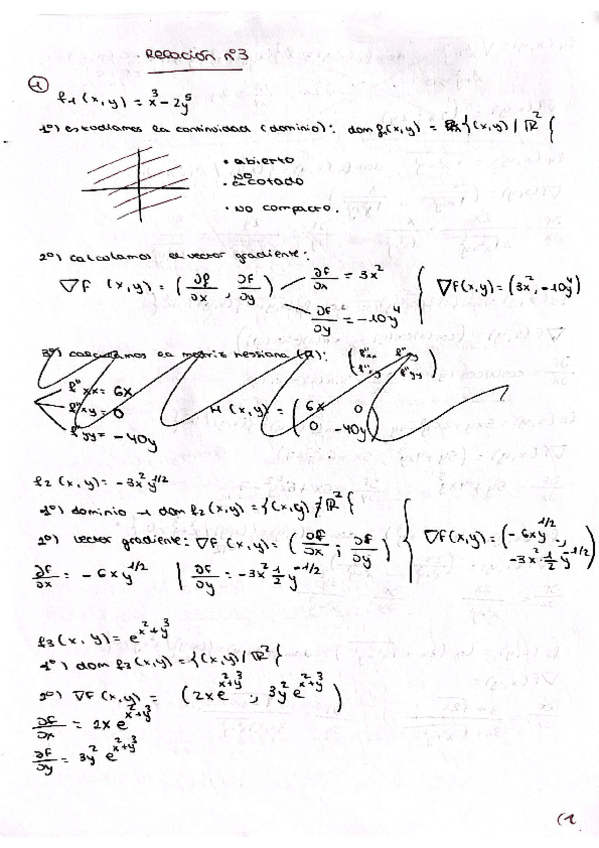 Relación nº3
1
f₁(x,y) = x³ - 2y⁵
1º) estudiamos la continuidad (dominio): dom f₁(x,y) = {(x,y)/ℝ²{
• abierto
• no acotado
• no compacto.
2º) calculamos el vector gradiente:
∇F (x,y) = (∂f/∂x , ∂F/∂y) ∂F/∂x = 3x² ∂F/∂y = -10y⁴ { ∇F(x,y) = (3x², -10y⁴)
3º) calculamos la matriz hessiana (H): (f''xx f''xy f''xy f''yy)
f''xx = 6x
f''xy = 0 H(x,y) = (6x 0 0 -40y)
f''yy = -40y
f₂(x,y) = -3x²y^1/2
1º) dominio → dom f₂(x,y) = {(x,y) / ℝ²{
2º) vector gradiente: ∇F(x,y) = (∂F/∂x ; ∂F/∂y) { ∇F(x,y) = (-6xy^1/2, -3x²·1/2 y^-1/2)
∂F/∂x = -6xy^1/2 | ∂F/∂y = -3x² 1/2 y^-1/2
f₃(x,y) = e^x²+y³
1º) dom f₃(x,y) = {(x,y)/ℝ²{
2º) ∇F(x,y) = (2xe^x²+y³, 3y²e^x²+y³)
∂F/∂x = 2xe^x²+y³
∂F/∂y = 3y² e^x²+y³
(1